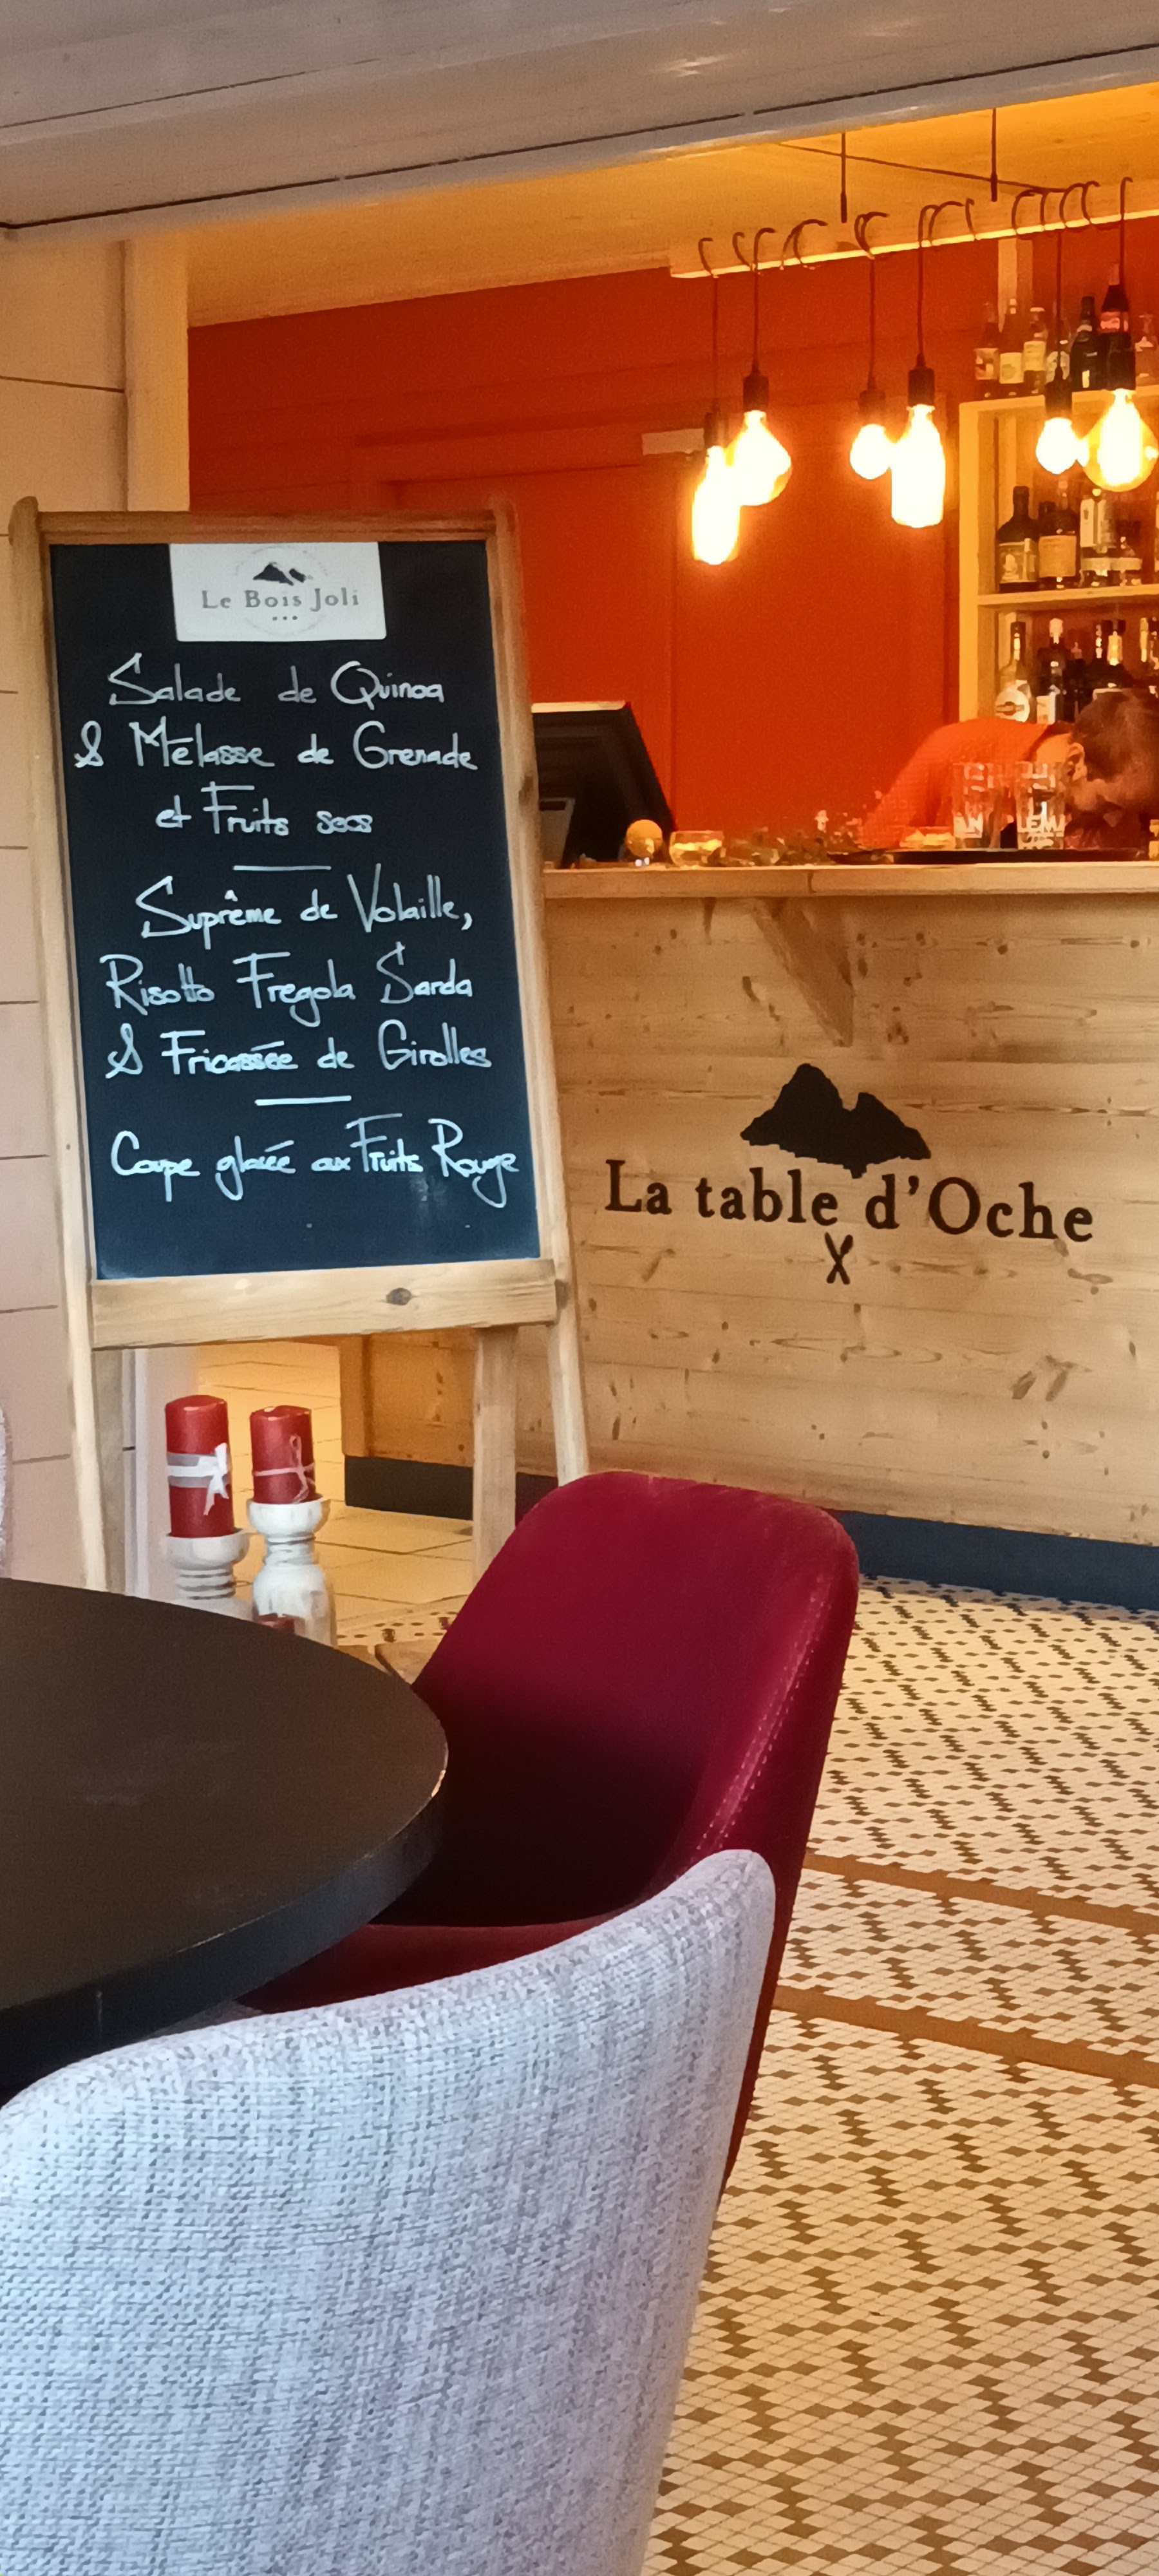 Le Bois Joli
Salade de Quinoa
& Mélasse de Grenade
et Fruits secs
Suprême de Volaille,
Risotto Fregola Sarda
& Fricassée de Girolles
Coupe glacée aux Fruits Rouge
La table d'Oche